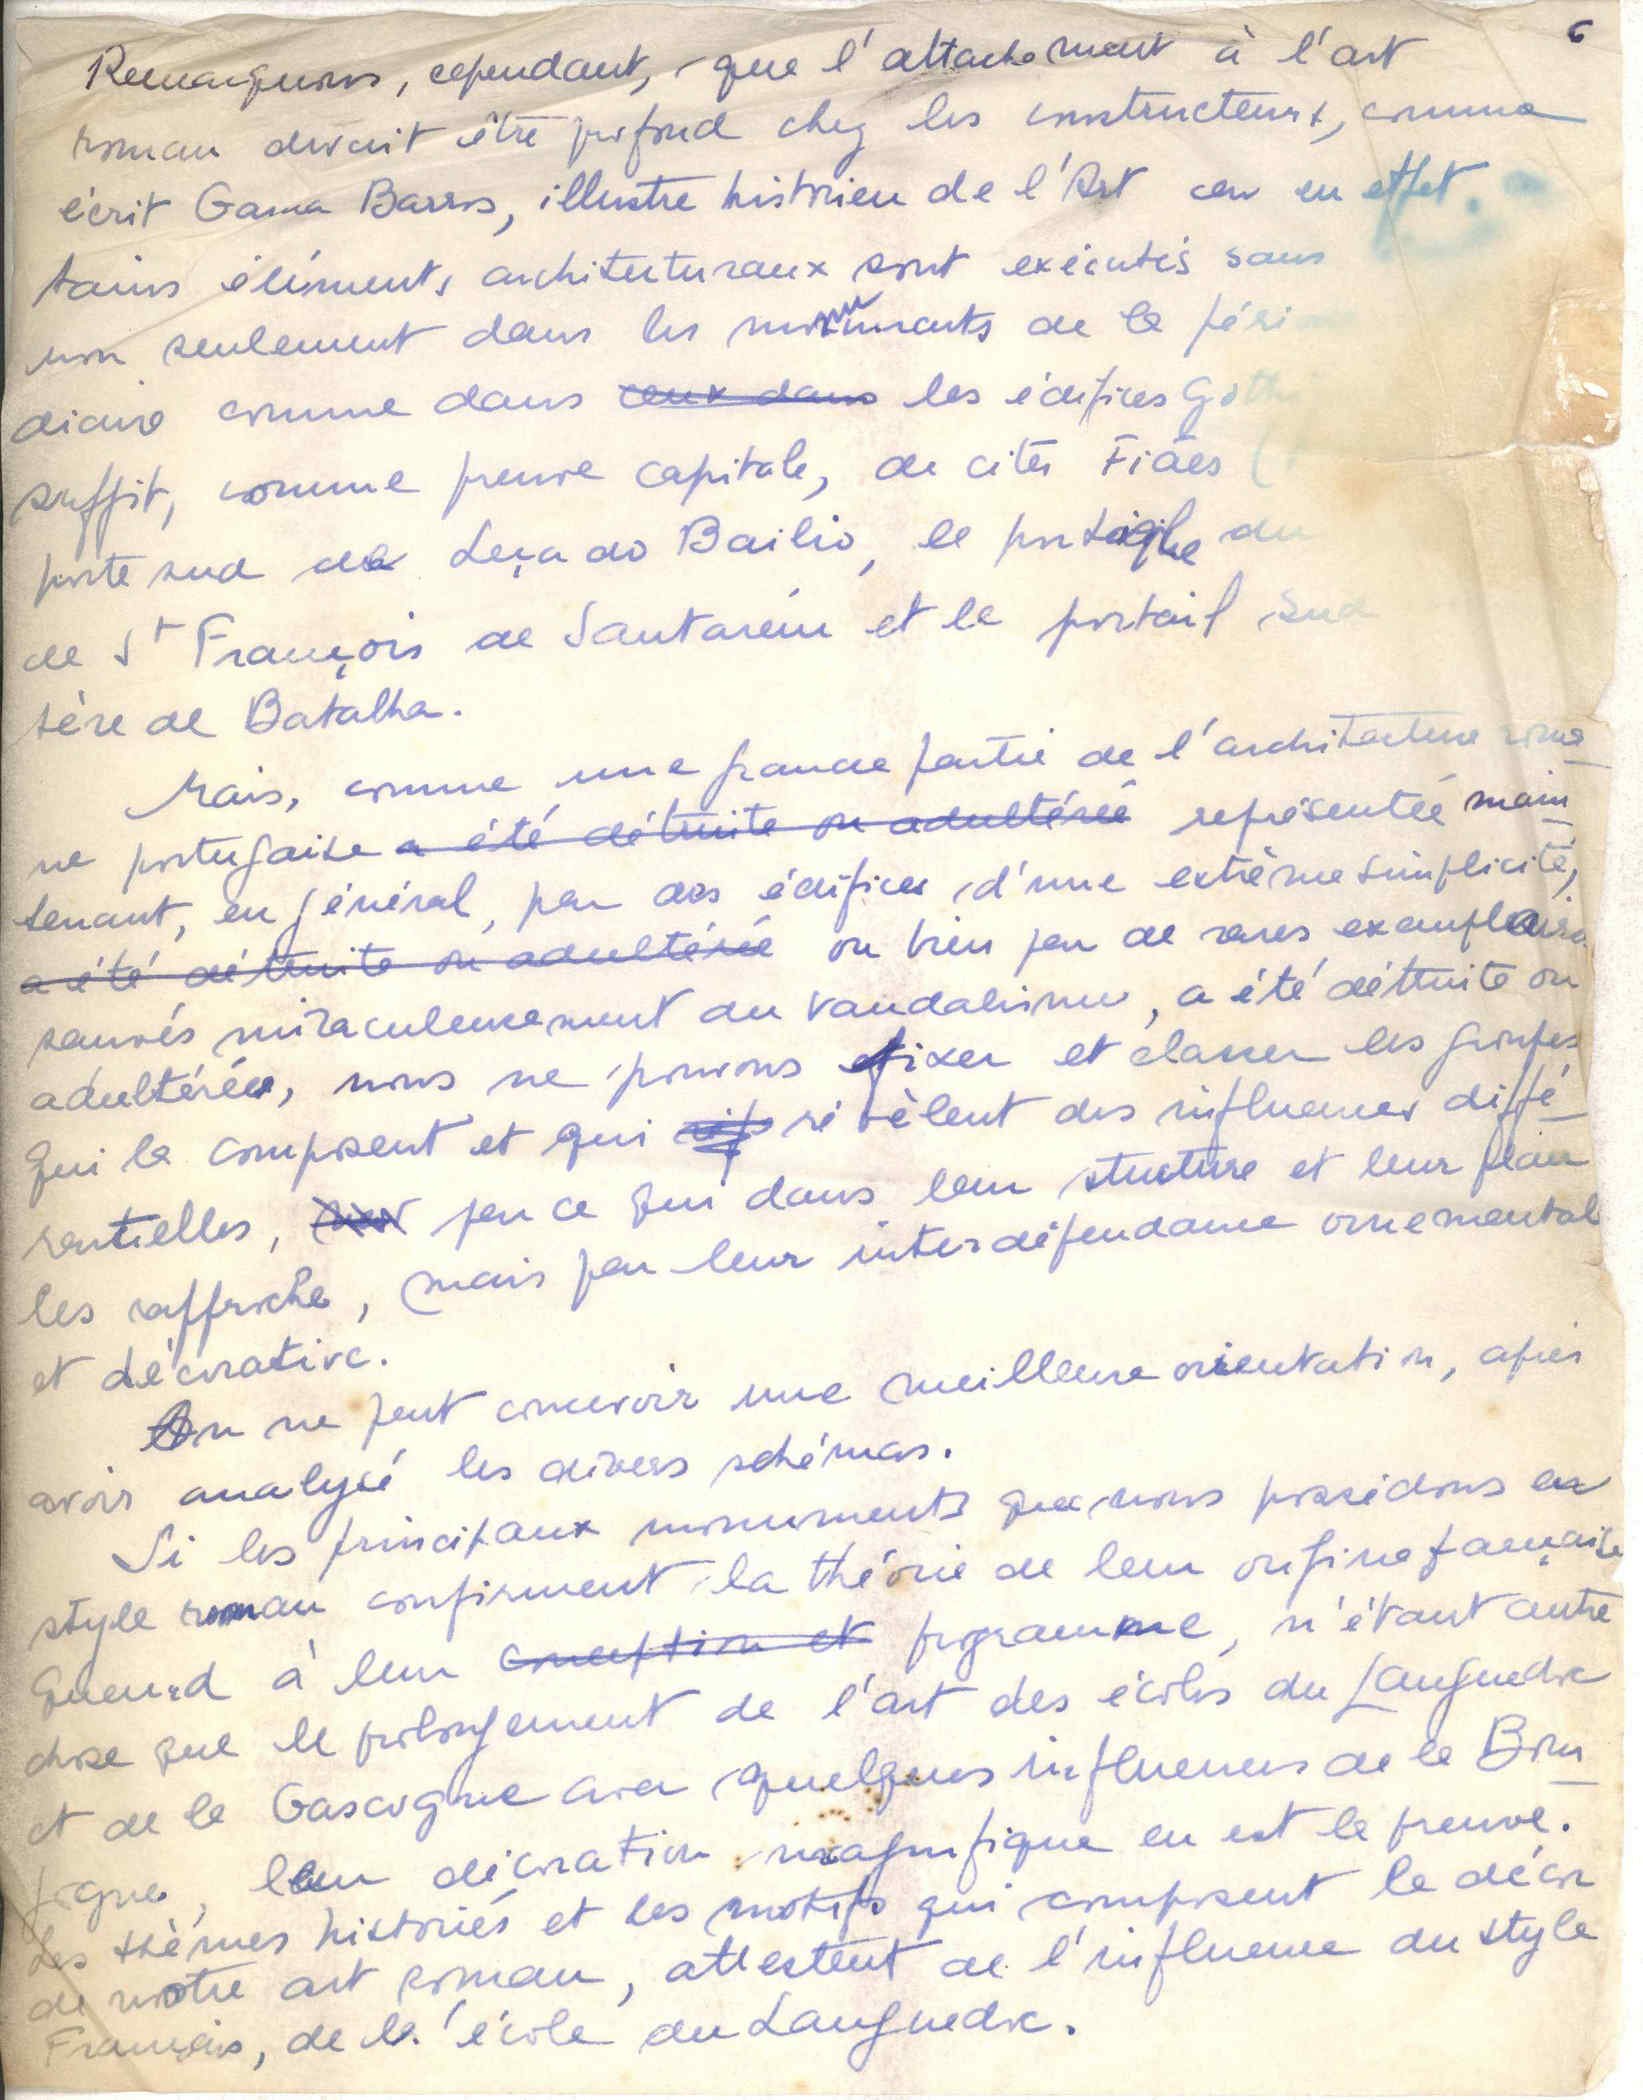 6
Remarquons, cependant, que l'attachement à l'art
roman devait être profond chez les constructeurs, comme
écrit Gama Barros, illustre historien de l'Art car en effet.
tains éléments architecturaux sont exécutés sans
non seulement dans les monuments de la péri
diaire comme dans ceux dans les édifices Goth
suffit, comme preuve capitale, de citer Fiães (
porte sud de Leça do Bailio, le du
de St François de Santarém et le portail sud
tère de Batalha.
Mais, comme une grande partie de l'architecture roma
ne portugaise a été détruite ou adultérée représentée main
tenant, en général, par des édifices d'une extrême simplicité,
a été détruite ou adultérée ou bien par de rares exemplaires
sauvés miraculeusement du vandalisme, a été détruite ou
adultérée, nous ne pouvons fixer et classer les groupes
qui la composent et qui révèlent des influences diffé-
rentielles, par ce qui dans leur structure et leur plan
les rapproche, mais par leur interdépendance ornemental
et décorative.
On ne peut concevoir une meilleure orientation, après
avoir analysé les divers schémas.
Si les principaux monuments que nous possédons en
style roman confirment la théorie de leur origine française
quand à leur conception et programme, n'étant autre
chose que le prolongement de l'art des écoles du Languedoc
et de la Gascogne avec quelques influences de la Bour
gogne, leur décoration magnifique en est la preuve.
Les thèmes historiés et les motifs qui composent le décor
de notre art roman, attestent de l'influence du style
Français, de la l'école du Languedoc.